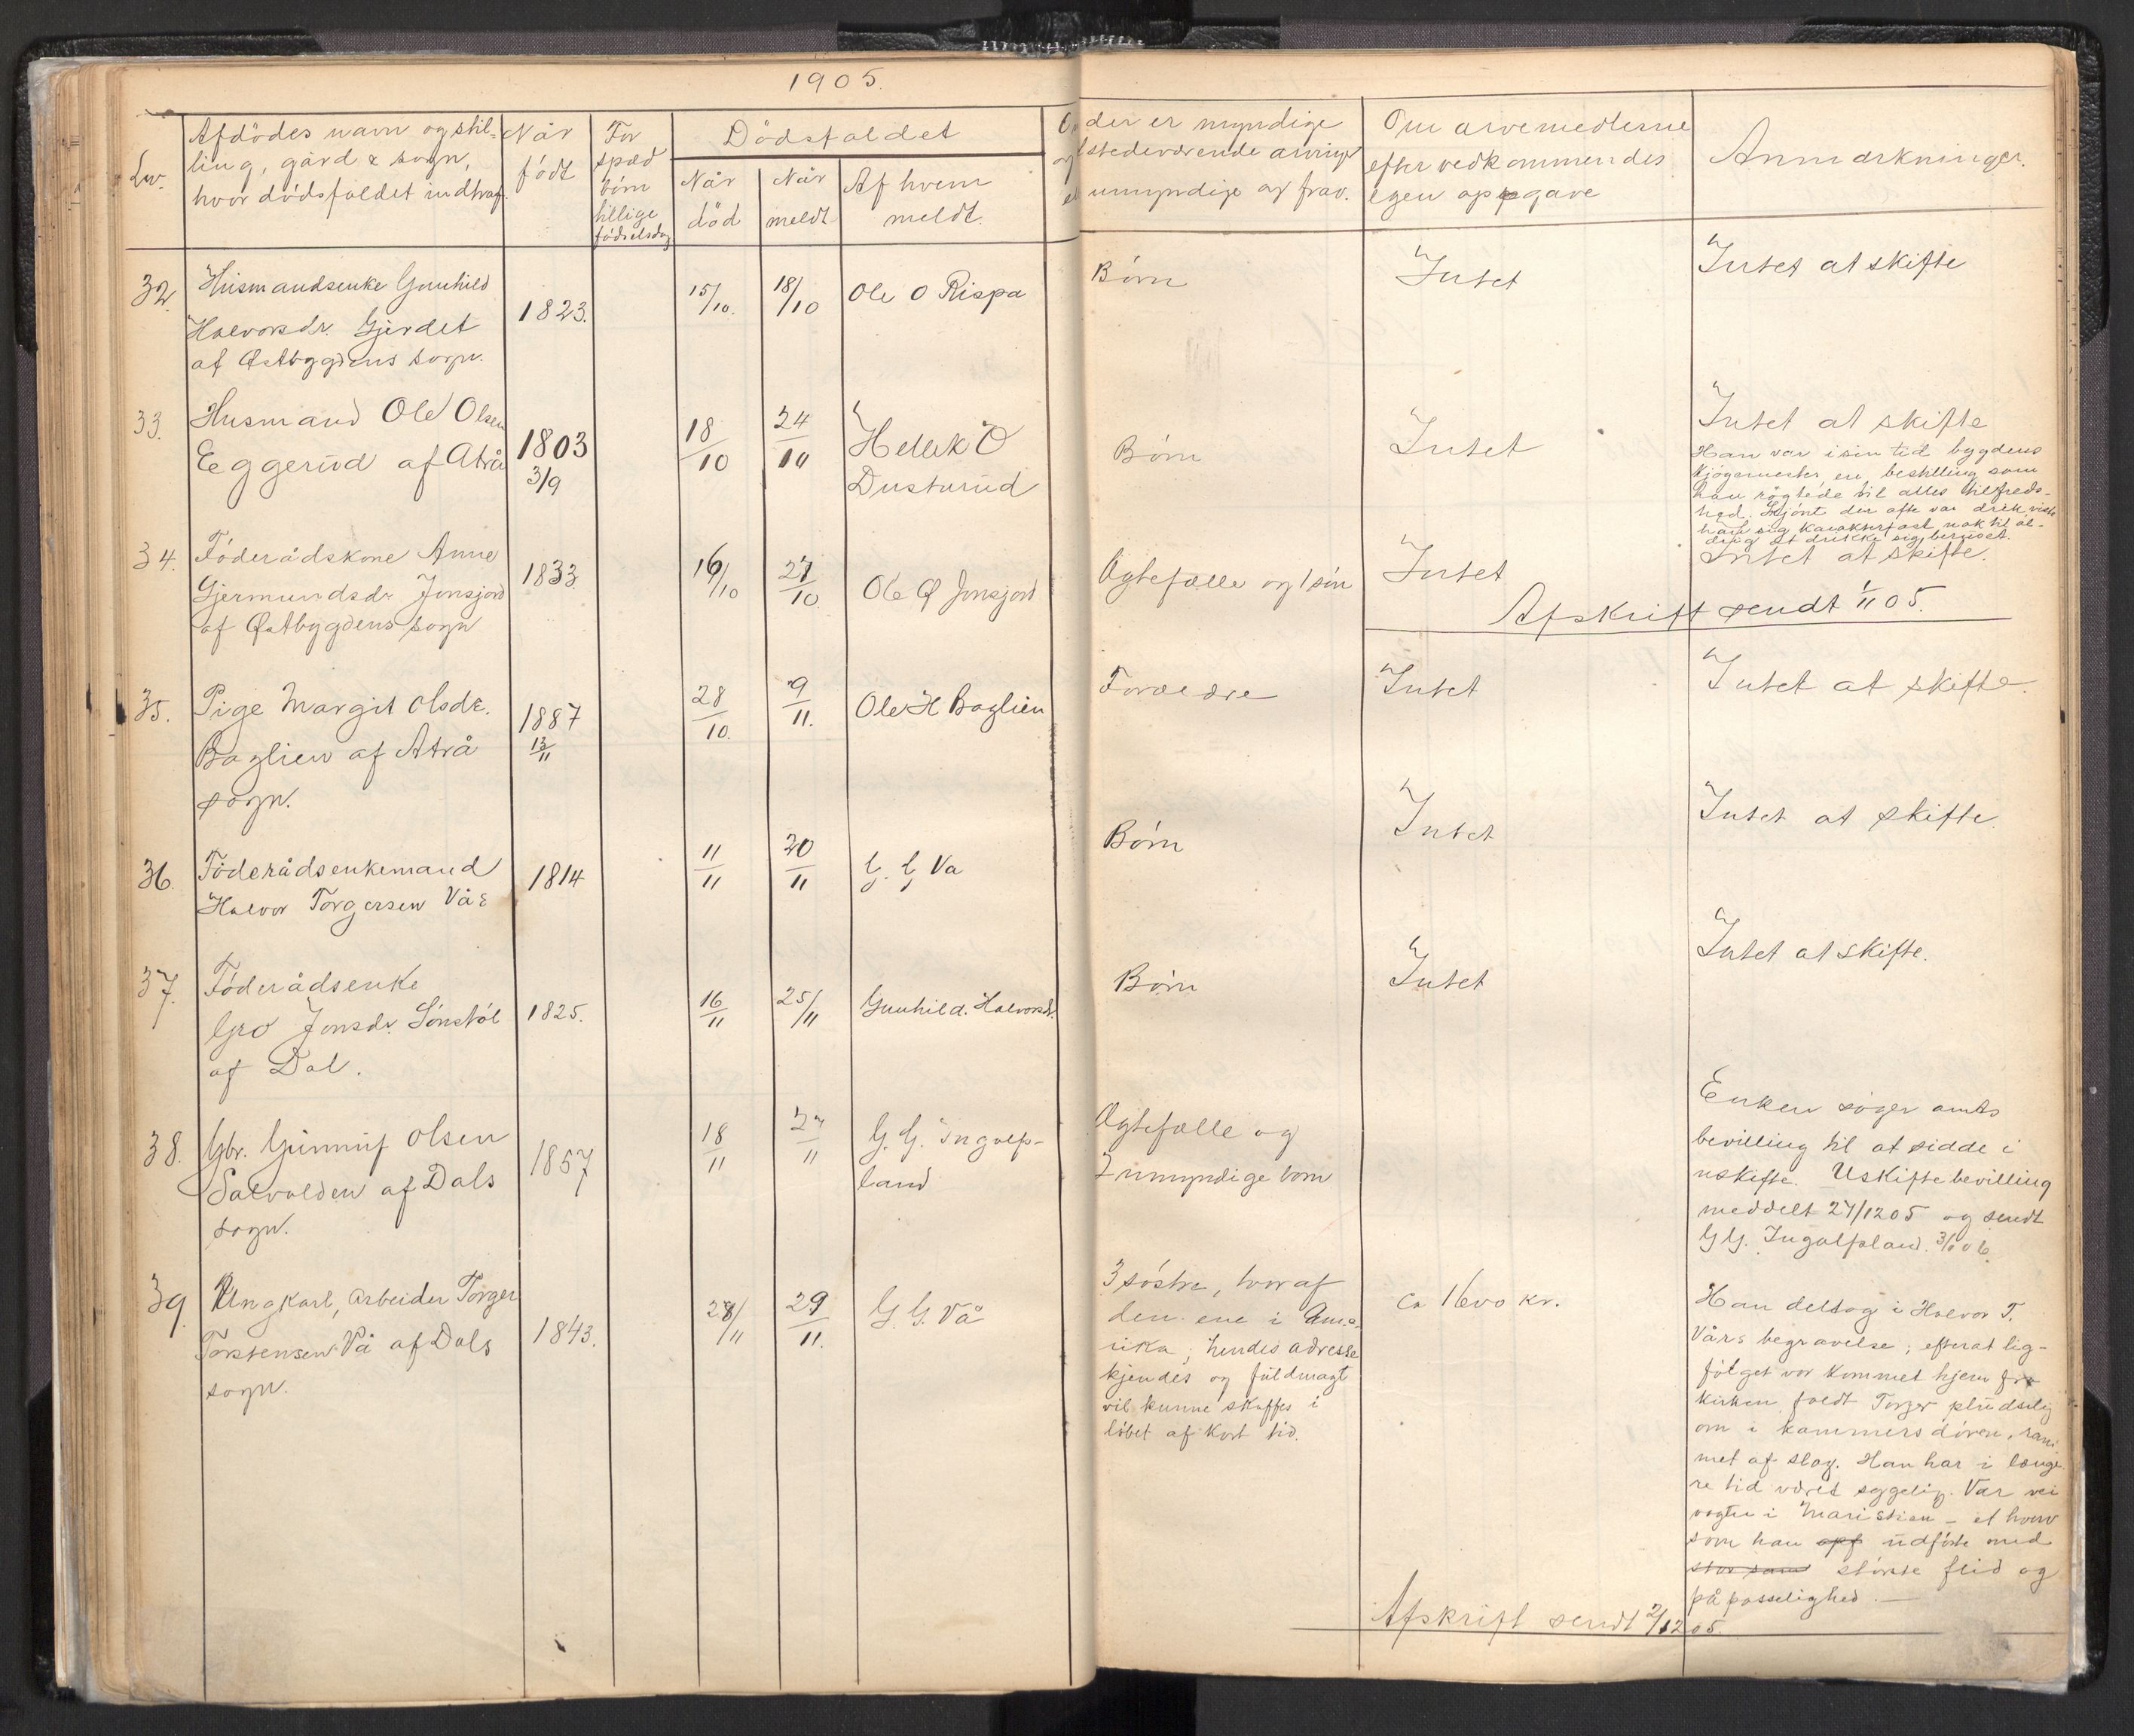 1905.
Lnr.
Afdödes navn og stil-
ling, gård & sogn,
hvor dödsfaldet indtraf.
Når
födt
For
spæd
börn
tillige
födselsdag
Dödsfaldet
Når
död
Når
meldt
Af hvem
meldt.
der er myndige
tilstedeværende arvinger
umyndige og frav.
Om arvemidlerne
efter vedkommendes
egen opgave
Anmærkninger.
32.
Husmandsenke Gunhild
Halvorsdr. Gjerdet
af Østbygdens sogn.
1823.
15/10.
18/10
Ole O Rispa
Börn
Intet
Intet at skifte
33.
Husmand Ole Olsen
Eggerud af Atrå
1803
3/9
18/10
24/10
Hellek O
Dusterud
Börn
Intet
Intet at skifte
Han var i sin tid bygdens
kjögemester en bestilling som
han rögtede til alles tilfreds-
hed. Skjönt der ofte var drik viste
han sig karakterfast nok til al-
drig at drikke sig beruset.
34.
Föderådskone Anne
Gjermundsdr Jonsjord
af Østbygdens sogn
1833
16/10
27/10.
Ole O Jonsjord
Ægtefælle og 1 sön
Intet
Intet at skifte.
Afskrift sendt 1/11 05.
35.
Pige Margit Olsdr.
Baglien af Atrå
sogn.
1887
13/11
28/10.
9/11.
Ole H Baglien
Forældre
Intet
Intet at skifte.
36.
Föderådsenkemand
Halvor Torgersen Våe
1814
11/11
20/11
G. G Va
Börn
Intet
Intet at skifte.
37.
Föderådsenke
Gro Jonsdr. Lönstöl
af Dal.
1825.
16/11
25/11
Gunhild. Halvorsdr.
Börn
Intet
Intet at skifte.
38.
Gbr. Gunnuf Olsen
Salvolden af Dals
sogn.
1857
18/11
27/11
G. G. Ingolfs-
land
Ægtefælle og
7 umyndige börn
Enken söger amts
bevilling til at sidde i
uskifte. Uskiftebevilling
meddelt 27/12 05 og sendt
G G. Ingolfsland. 3/1 06
39.
Ungkarl, arbeider Torger
Torstensen Vå af Dals
sogn.
1843.
28/11
29/11.
G. G. Vå
3 söstre, hvoraf
den ene i Ame-
rika; hendes adresse
kjendes og fuldmagt
vil kunne skaffes i
löbet af kort tid.
ca 1600 kr.
Han deltog i Halvor T.
Vårs begravelse; efterat lig-
fölget var kommet hjem fra
kirken, faldt Torger pludselig
om i kammersdören, ram-
met af slag. Han har i længe-
re tid været sygelig. Var vei
vogter i Maristien - et hverv
som han opf udförte med
stor sam störste flid og
påpasselighed. —
Afskrift sendt 2/12 05.